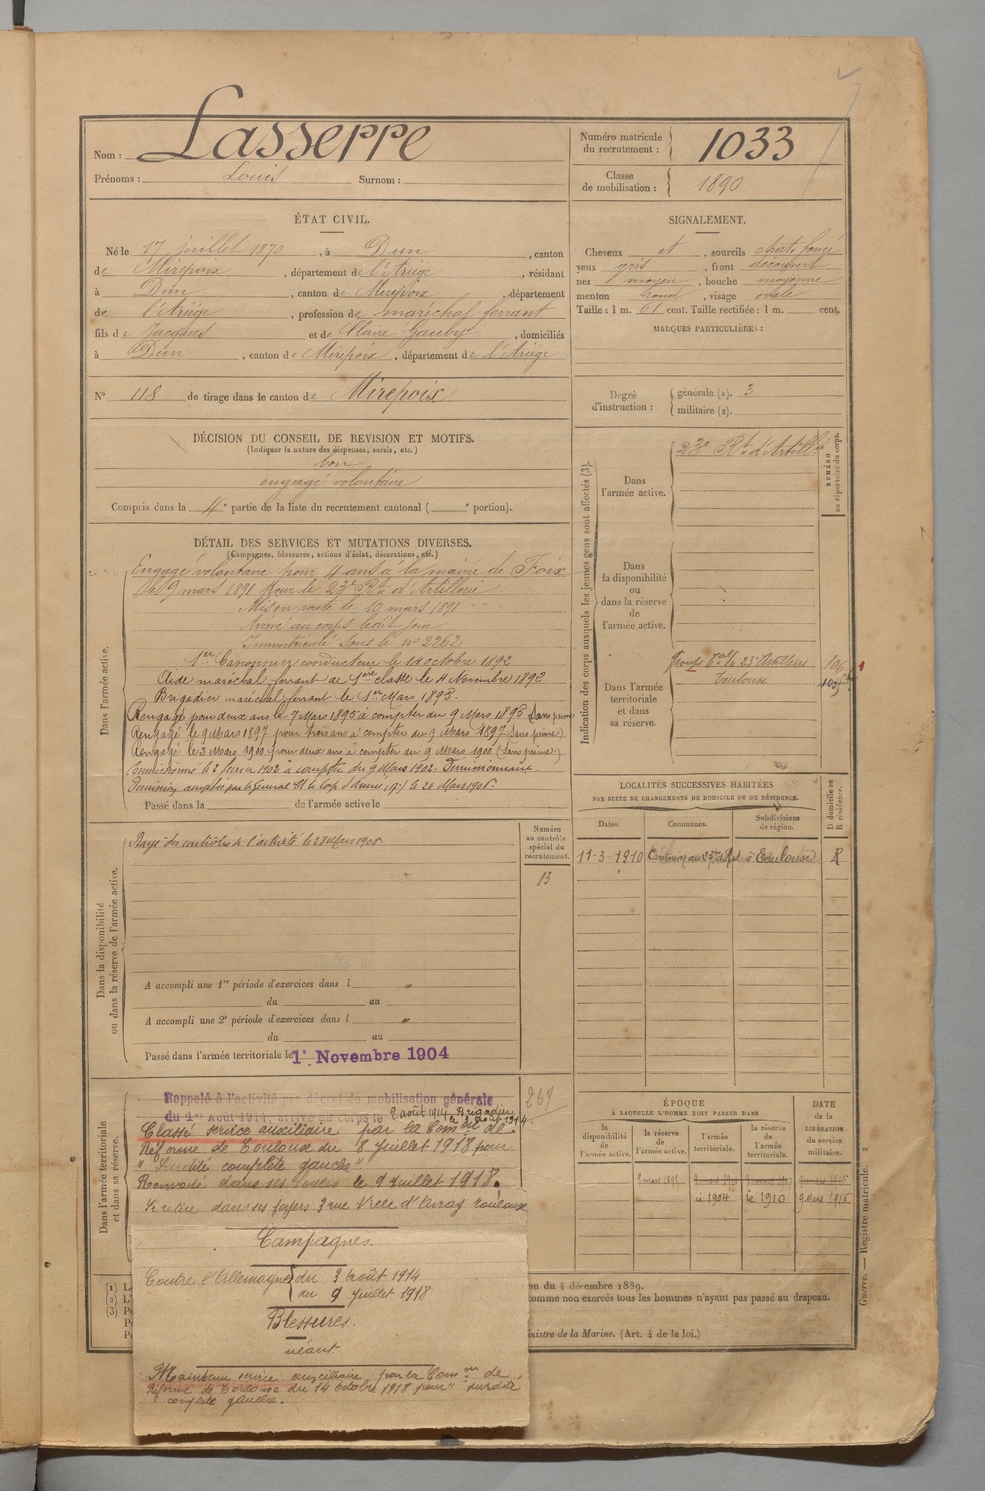 Nom : Lasserre
Prénoms : Louis Surnom :
Numéro matricule
du recrutement : 1033
Classe
de mobilisation : 1890
ÉTAT CIVIL.
Né le 17 juillet 1870, à Dun, canton
de Mirepoix, département de l'Ariège, résidant
à Dun, canton de Mirepoix, département
de l'Ariège, profession de maréchal ferrant
fils de Jacques et de Claire Gauby, domiciliés
à Dun, canton de Mirepoix, département de l'Ariège
N° 118 de tirage dans le canton de Mirepoix
SIGNALEMENT.
Cheveux et, sourcils chat. foncé
yeux gris, front découvert
nez moyen, bouche moyenne
menton rond, visage ovale
Taille : 1 m. 61 cent. Taille rectifiée : 1 m. cent.
MARQUES PARTICULIÈRES :
Degré
d'instruction :
générale (1). 3
militaire (2).
DÉCISION DU CONSEIL DE REVISION ET MOTIFS.
(Indiquer la nature des dispenses, sursis, etc.)
bon
engagé volontaire
Compris dans la 4e partie de la liste du recrutement cantonal ( e portion).
DÉTAIL DES SERVICES ET MUTATIONS DIVERSES.
(Campagnes, blessures, actions d'éclat, décorations, etc.)
Dans l'armée active.
Engagé volontaire pour 4 ans à la mairie de Foix
le 9 mars 1891 pour le 23e Rt d'Artillerie
Mis en route le 10 mars 1891
Arrivé au corps ledit jour
Immatriculé sous le n° 2262
1er Canonnier conducteur le 14 octobre 1892
Aide maréchal ferrant de 1ère classe le 4 Novembre 1892
Brigadier maréchal ferrant le 1er Mars 1893.
Rengagé pour deux ans le 7 Mars 1895 à compter du 9 Mars 1895 (Sans prime)
Rengagé le 9 Mars 1897 pour trois ans à compter du 9 Mars 1897 (Sans prime)
Rengagé le 3 Mars 1900 pour deux ans à compter du 9 Mars 1900 (Sans prime)
Commissionné le 2 février 1902 à compter du 9 Mars 1902.
Démission acceptée par le Général Ct le Corps d'Armée (17e) le 26 Mars
Passé dans la de l'armée active le
Indication des corps auxquels les jeunes gens sont affectés (3).
NUMÉRO
au répertoire du corps.
Dans
l'armée active.
23e Rt d'Artillie
Dans
la disponibilité
ou
dans la réserve
de
l'armée active.
Dans l'armée
territoriale
et dans
sa réserve.
Groupe Teral du 23e Artillerie
Toulouse
Dans la disponibilité
ou dans la réserve de l'armée active.
Rayé des contrôles de l'activité le 28 Mars
Numéro
au contrôle
spécial du
recrutement.
13
A accompli une 1re période d'exercices dans l "
du au
A accompli une 2e période d'exercices dans l "
du au
Passé dans l'armée territoriale le 1er Novembre 1904
LOCALITÉS SUCCESSIVES HABITÉES
PAR SUITE DE CHANGEMENTS DE DOMICILE OU DE RÉSIDENCE.
D domicile ou
R résidence.
Dates.
Communes.
Subdivisions
de région.
11-3-1910 à Toulouse R
Dans l'armée territoriale
et dans sa réserve.
Rappelé à l'activité par décret de mobilisation générale
du 1er Août 1914, arrivé au corps le 2 août 1914. Brigadier
le 3 Août 1914.
269
Classé service auxiliaire par la Comon de
Réforme de Toulouse du 8 Juillet 1918 pour
"Surdité complète gauche"
Renvoyé dans ses foyers le 9 juillet 1918.
Se retire dans ses foyers 3 rue Ville d'Avray Toulouse
Campagnes.
Contre l'Allemagne du 3 août 1914
au 9 Juillet 1918
Blessures.
néant
Maintenu service auxiliaire par la Comon de
Réforme de Toulouse du 14 Octobre 1918 pour "surdité
complète gauche.
ÉPOQUE
À LAQUELLE L'HOMME DOIT PASSER DANS
la
disponibilité
de
l'armée active.
la réserve
de
l'armée active.
l'armée
territoriale.
la réserve
de
l'armée
territoriale.
DATE
de la
LIBÉRATION
du service
militaire.
9 mars 1895
1904
1910
9 Mars 1916
on du 4 décembre 1889.
comme non exercés tous les hommes n'ayant pas passé au drapeau.
inistre de la Marine. (Art. 4 de la loi.)
(1)
(2)
(3)
Guerre. — Registre matricule. 2